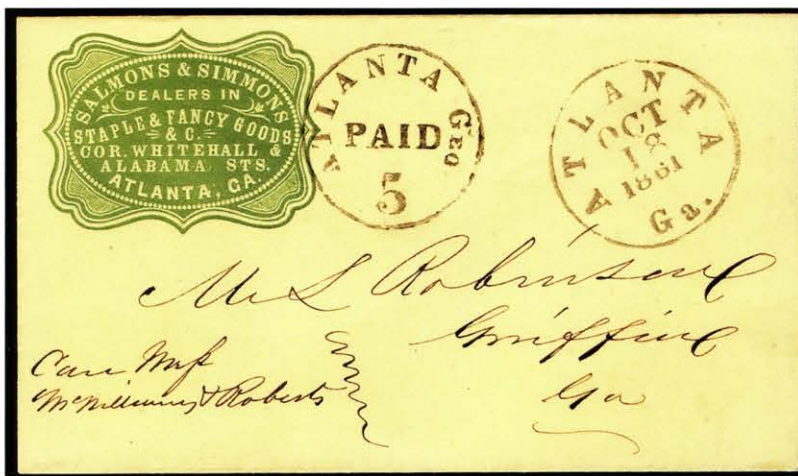 SALMONS & SIMMONS
DEALERS IN
STAPLE & FANCY GOODS
& C.
COR. WHITEHALL &
ALABAMA STS.
ATLANTA, GA.
ATLANTA GEO
PAID
5
ATLANTA
OCT
18
1861
Ga.
Mr L Robinson
Griffin
Ga
Care Mess
McWilliams & Roberts